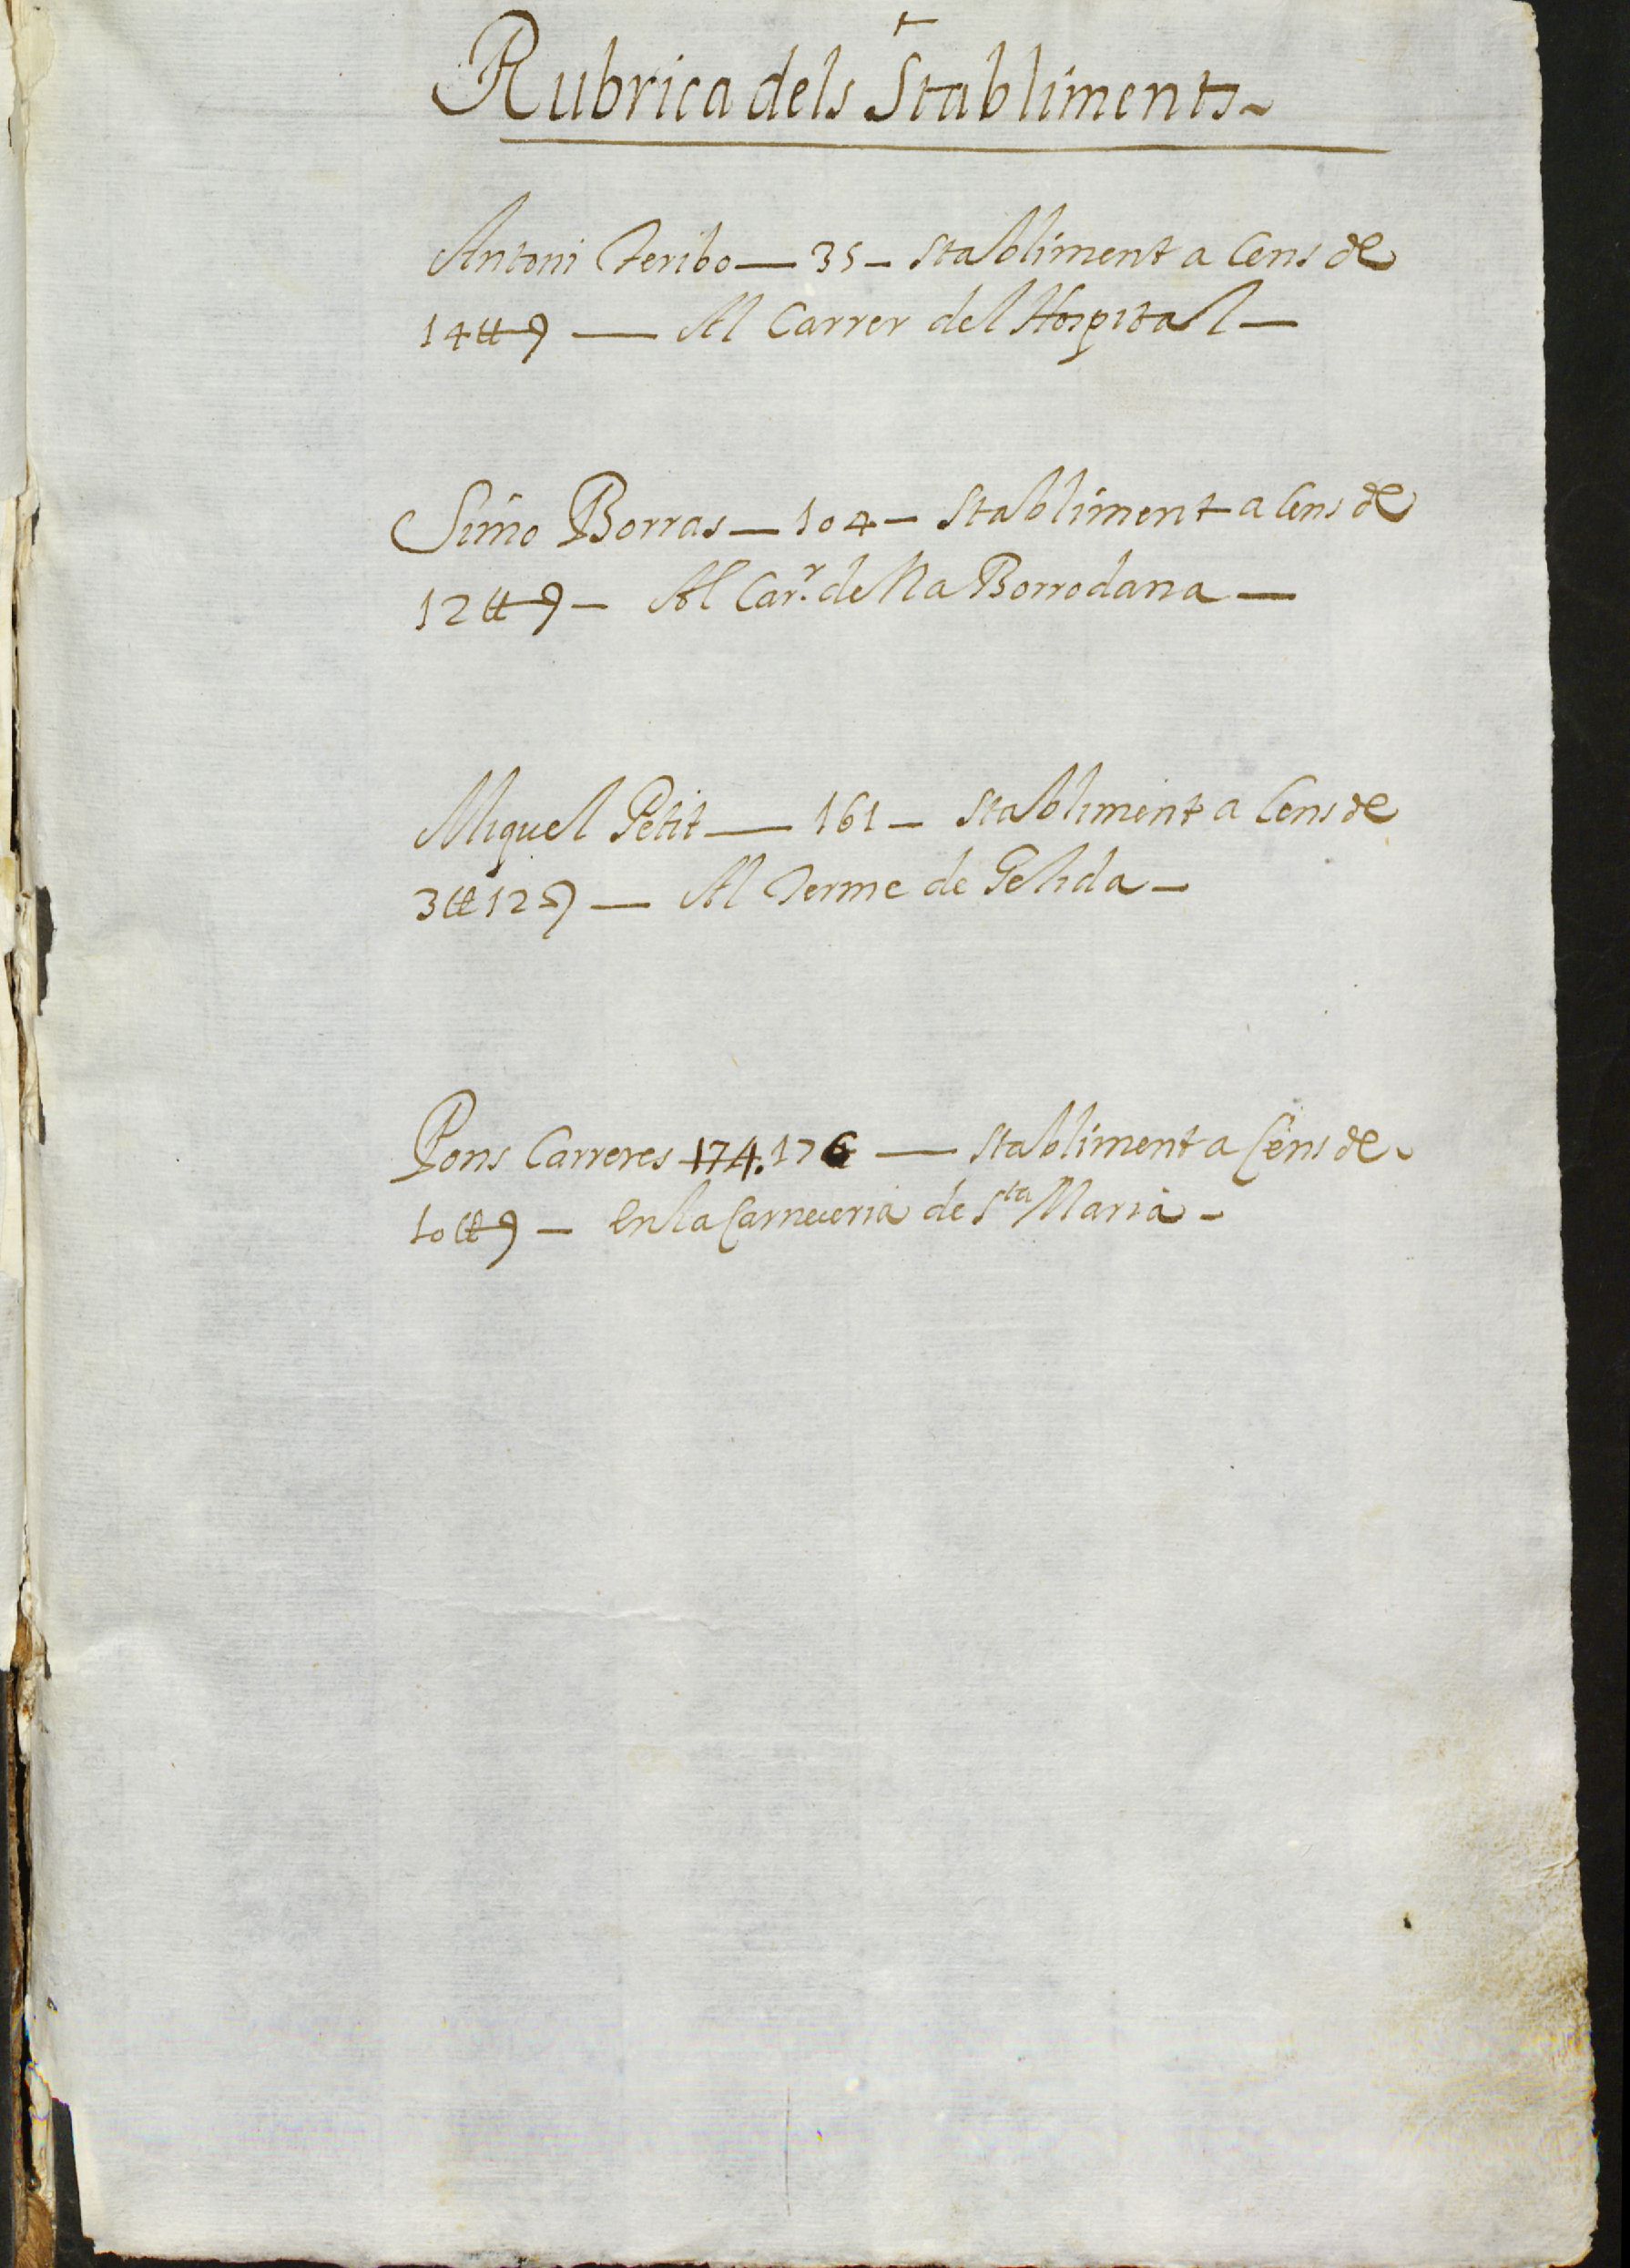 Rubrica dels Stabliments
Antoni Teribo — 35 — Stabliment a Cens de
14 ₶ — Al Carrer del Hospital —
Simo Borras — 104 — Stabliment a Cens de
12 ₶ — Al Carʳ. de Na Borrodana —
Miquel Petit — 161 — Stabliment a Cens de
3 ₶ 12 s — Al Terme de Gelida —
Pons Carreres 174. 176 — Stabliment a Cens de
10 ₶ — En la Carneceria de Sᵗᵃ Maria —